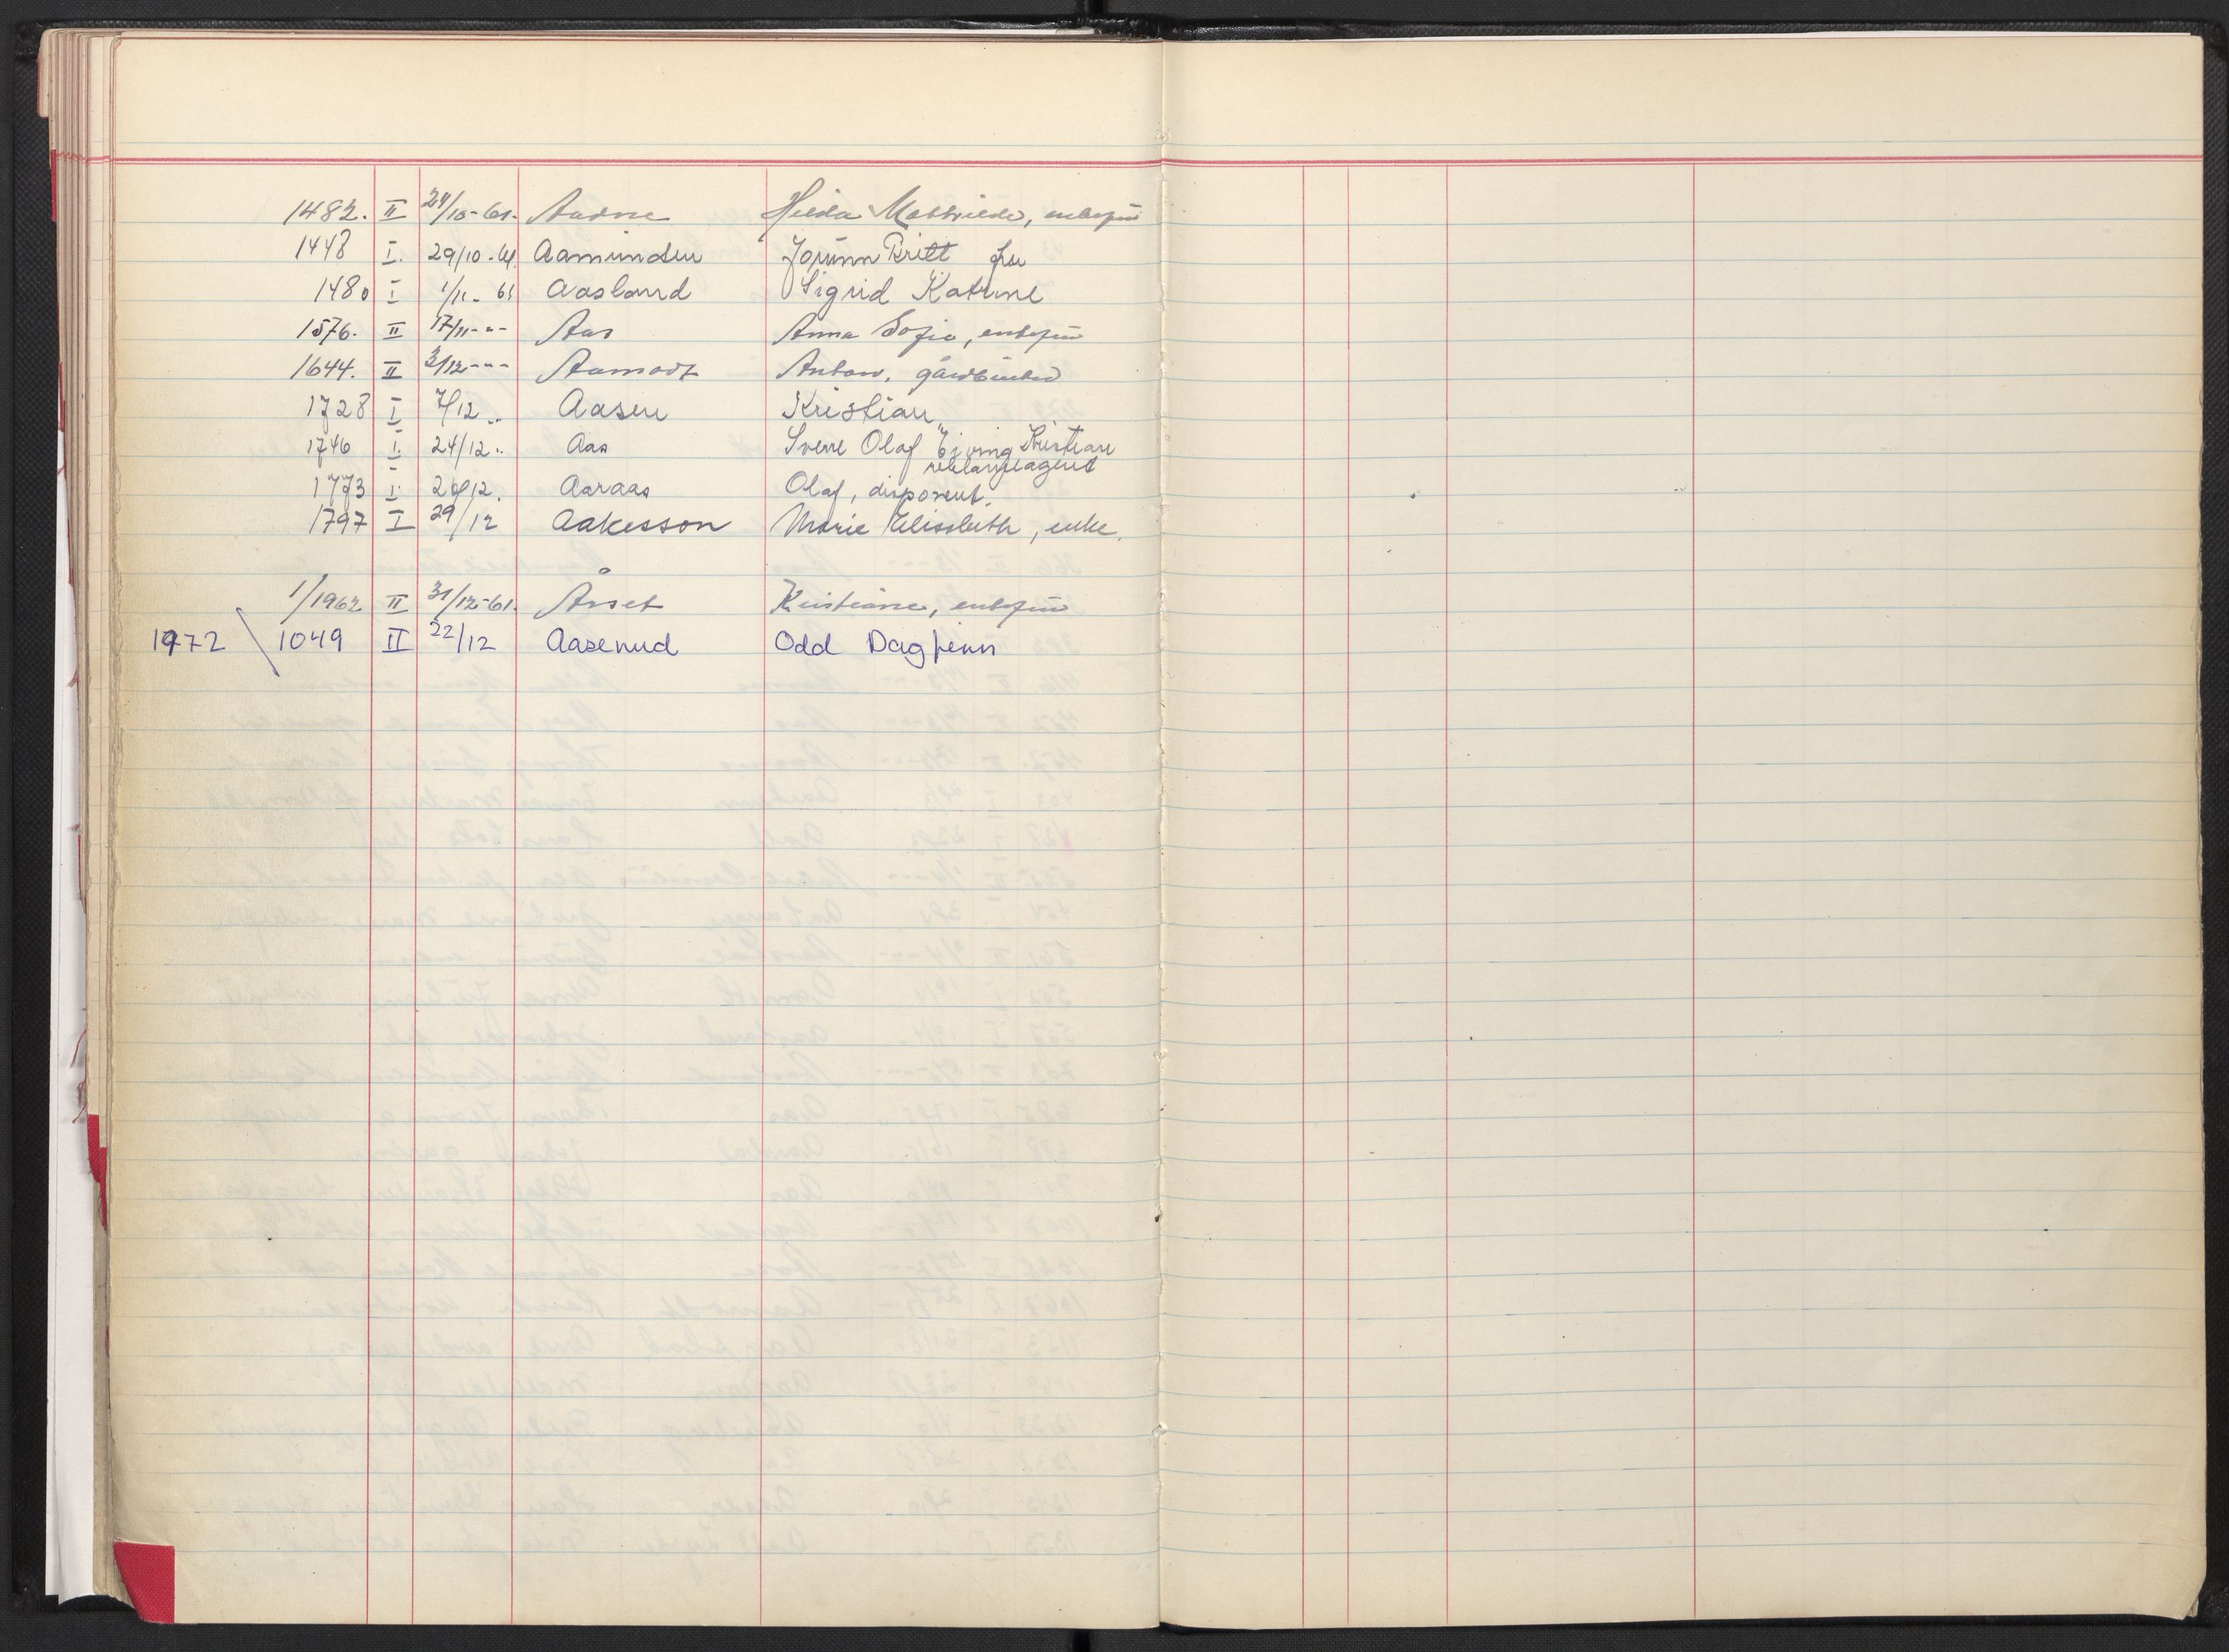 1482. II 24/10-61. Aadne Hilda Mathilde, enkefru
1448 I. 29/10-61. Aamunden Jorunn Britt fru
1480 I 1/11-61 Aasland Sigrid Katrine
1576. II 17/11-"- Aas Anna Sofie, enkefru
1644. II 3/12-"- Aamodt Anton, gårdbruker
1728 I 7/12 " Aasen Kristian
1746 I. 24/12 " Aas Sverre Olaf Eiving Kristian
reklameagent
1773 I 28/12. Aaraas Olaf, disponent.
1797 I 29/12 Aakesson Marie Elisabeth, enke.
1/1962 II 31/12-61. Årset Kristiane, enkefru
1972 \ 1049 II 22/12 Aaserud Odd Dagfinn